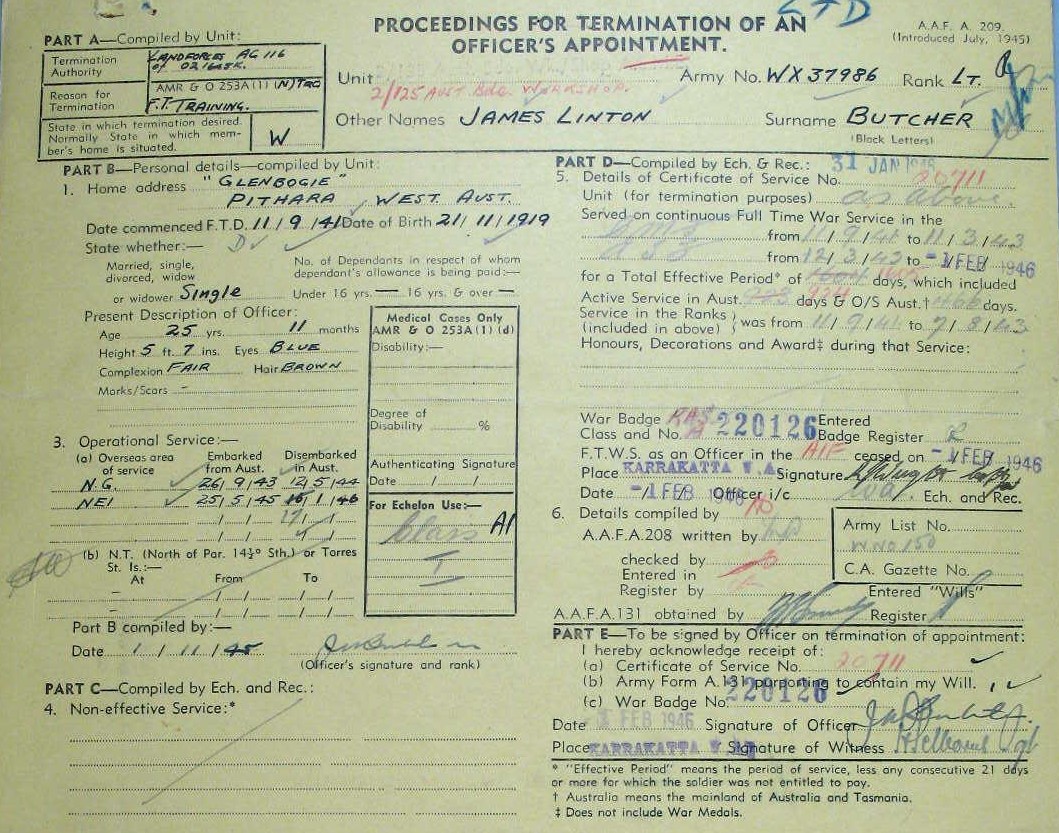 LTD
PROCEEDINGS FOR TERMINATION OF AN
OFFICER'S APPOINTMENT.
A.A.F. A. 209.
(Introduced July, 1945)
PART A—Compiled by Unit:
Termination Authority LANDFORCES AG 116
Reason for Termination AMR & O 253A(1)(N) TRG
F.T. TRAINING.
State in which termination desired. Normally State in which member's home is situated. W
Unit 2/125 AUST. Bde. WORKSHOP.
Army No. WX 37986 Rank LT.
Other Names JAMES LINTON Surname BUTCHER
(Block Letters)
PART B—Personal details—compiled by Unit:
1. Home address "GLENBOGIE"
PITHARA, WEST AUST.
Date commenced F.T.D. 11/9/41 Date of Birth 21/11/1919
State whether:—
Married, single, divorced, widow or widower Single
No. of Dependants in respect of whom dependant's allowance is being paid:—
Under 16 yrs. — 16 yrs. & over —
Present Description of Officer:
Age 25 yrs. 11 months
Height 5 ft. 7 ins. Eyes BLUE
Complexion FAIR Hair BROWN
Marks/Scars –
Medical Cases Only
AMR & O 253A(1)(d)
Disability:—
Degree of
Disability %
Authenticating Signature
Date / /
For Echelon Use:—
Class A1
I
3. Operational Service:—
(a) Overseas area of service
Embarked from Aust.
Disembarked in Aust.
N.G. 26/9/43 12/5/44
NEI 25/5/45 1/46
(b) N.T. (North of Par. 14½° Sth.) or Torres
St. Is.:—
At From To
– / / / /
– / / / /
Part B compiled by:—
Date 1/11/45
(Officer's signature and rank)
PART C—Compiled by Ech. and Rec.:
4. Non-effective Service:*
PART D—Compiled by Ech. & Rec.: 31 JAN 1946
5. Details of Certificate of Service No. 20711
Unit (for termination purposes) as above.
Served on continuous Full Time War Service in the
from 11/9/41 to 11/3/43
from 12/3/43 to -1 FEB 1946
for a Total Effective Period* of 1605 days, which included
Active Service in Aust. days & O/S Aust.† 466 days.
Service in the Ranks (included in above) was from 11/9/41 to 7/8/43
Honours, Decorations and Award‡ during that Service:
War Badge Class and No. A 220126 Entered Badge Register
F.T.W.S. as an Officer in the AIF ceased on -1 FEB 1946
Place KARRAKATTA W.A. Signature
Date -1 FEB 1946 Officer i/c Ech. and Rec.
6. Details compiled by
A.A.F.A.208 written by
checked by
Entered in
Register by
Army List No.
C.A. Gazette No.
Entered "Wills"
A.A.F.A.131 obtained by Register
PART E—To be signed by Officer on termination of appointment:
I hereby acknowledge receipt of:
(a) Certificate of Service No. 20711
(b) Army Form A.131 purporting to contain my Will.
(c) War Badge No. 220126
Date 1 FEB 1946 Signature of Officer
Place KARRAKATTA W. Signature of Witness
* "Effective Period" means the period of service, less any consecutive 21 days
or more for which the soldier was not entitled to pay.
† Australia means the mainland of Australia and Tasmania.
‡ Does not include War Medals.